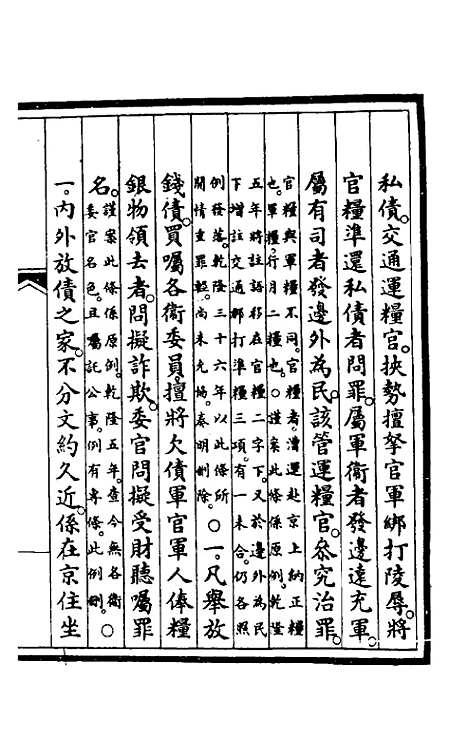 私債。交通運糧官。挾勢擅拏官軍綁打陵辱。將
官糧準還私債者問罪。屬軍衛者發邊遠充軍。
屬有司者發邊外為民。該管運糧官。叅究治罪。
官糧與軍糧不同。官糧者。漕運赴京上納正糧
也。軍糧。行月二糧也。○謹案此條係原例。乾隆
五年將註語移在官糧二字下。又於邊外為民
下增註交通綁打準糧三項。有一未合。仍各照
例發落。乾隆三十六年以此條所
開情重罪輕。尚未允協。奏明刪除。○一。凡舉放
錢債。買囑各衛委員。擅將欠債軍官軍人俸糧
銀物領去者。問擬詐欺。委官問擬受財聽囑罪
名。謹案此條係原例。乾隆五年。查今無各衛
委官名色。且囑託公事。例有專條。此例刪。○
一。內外放債之家。不分文約久近。係在京住坐